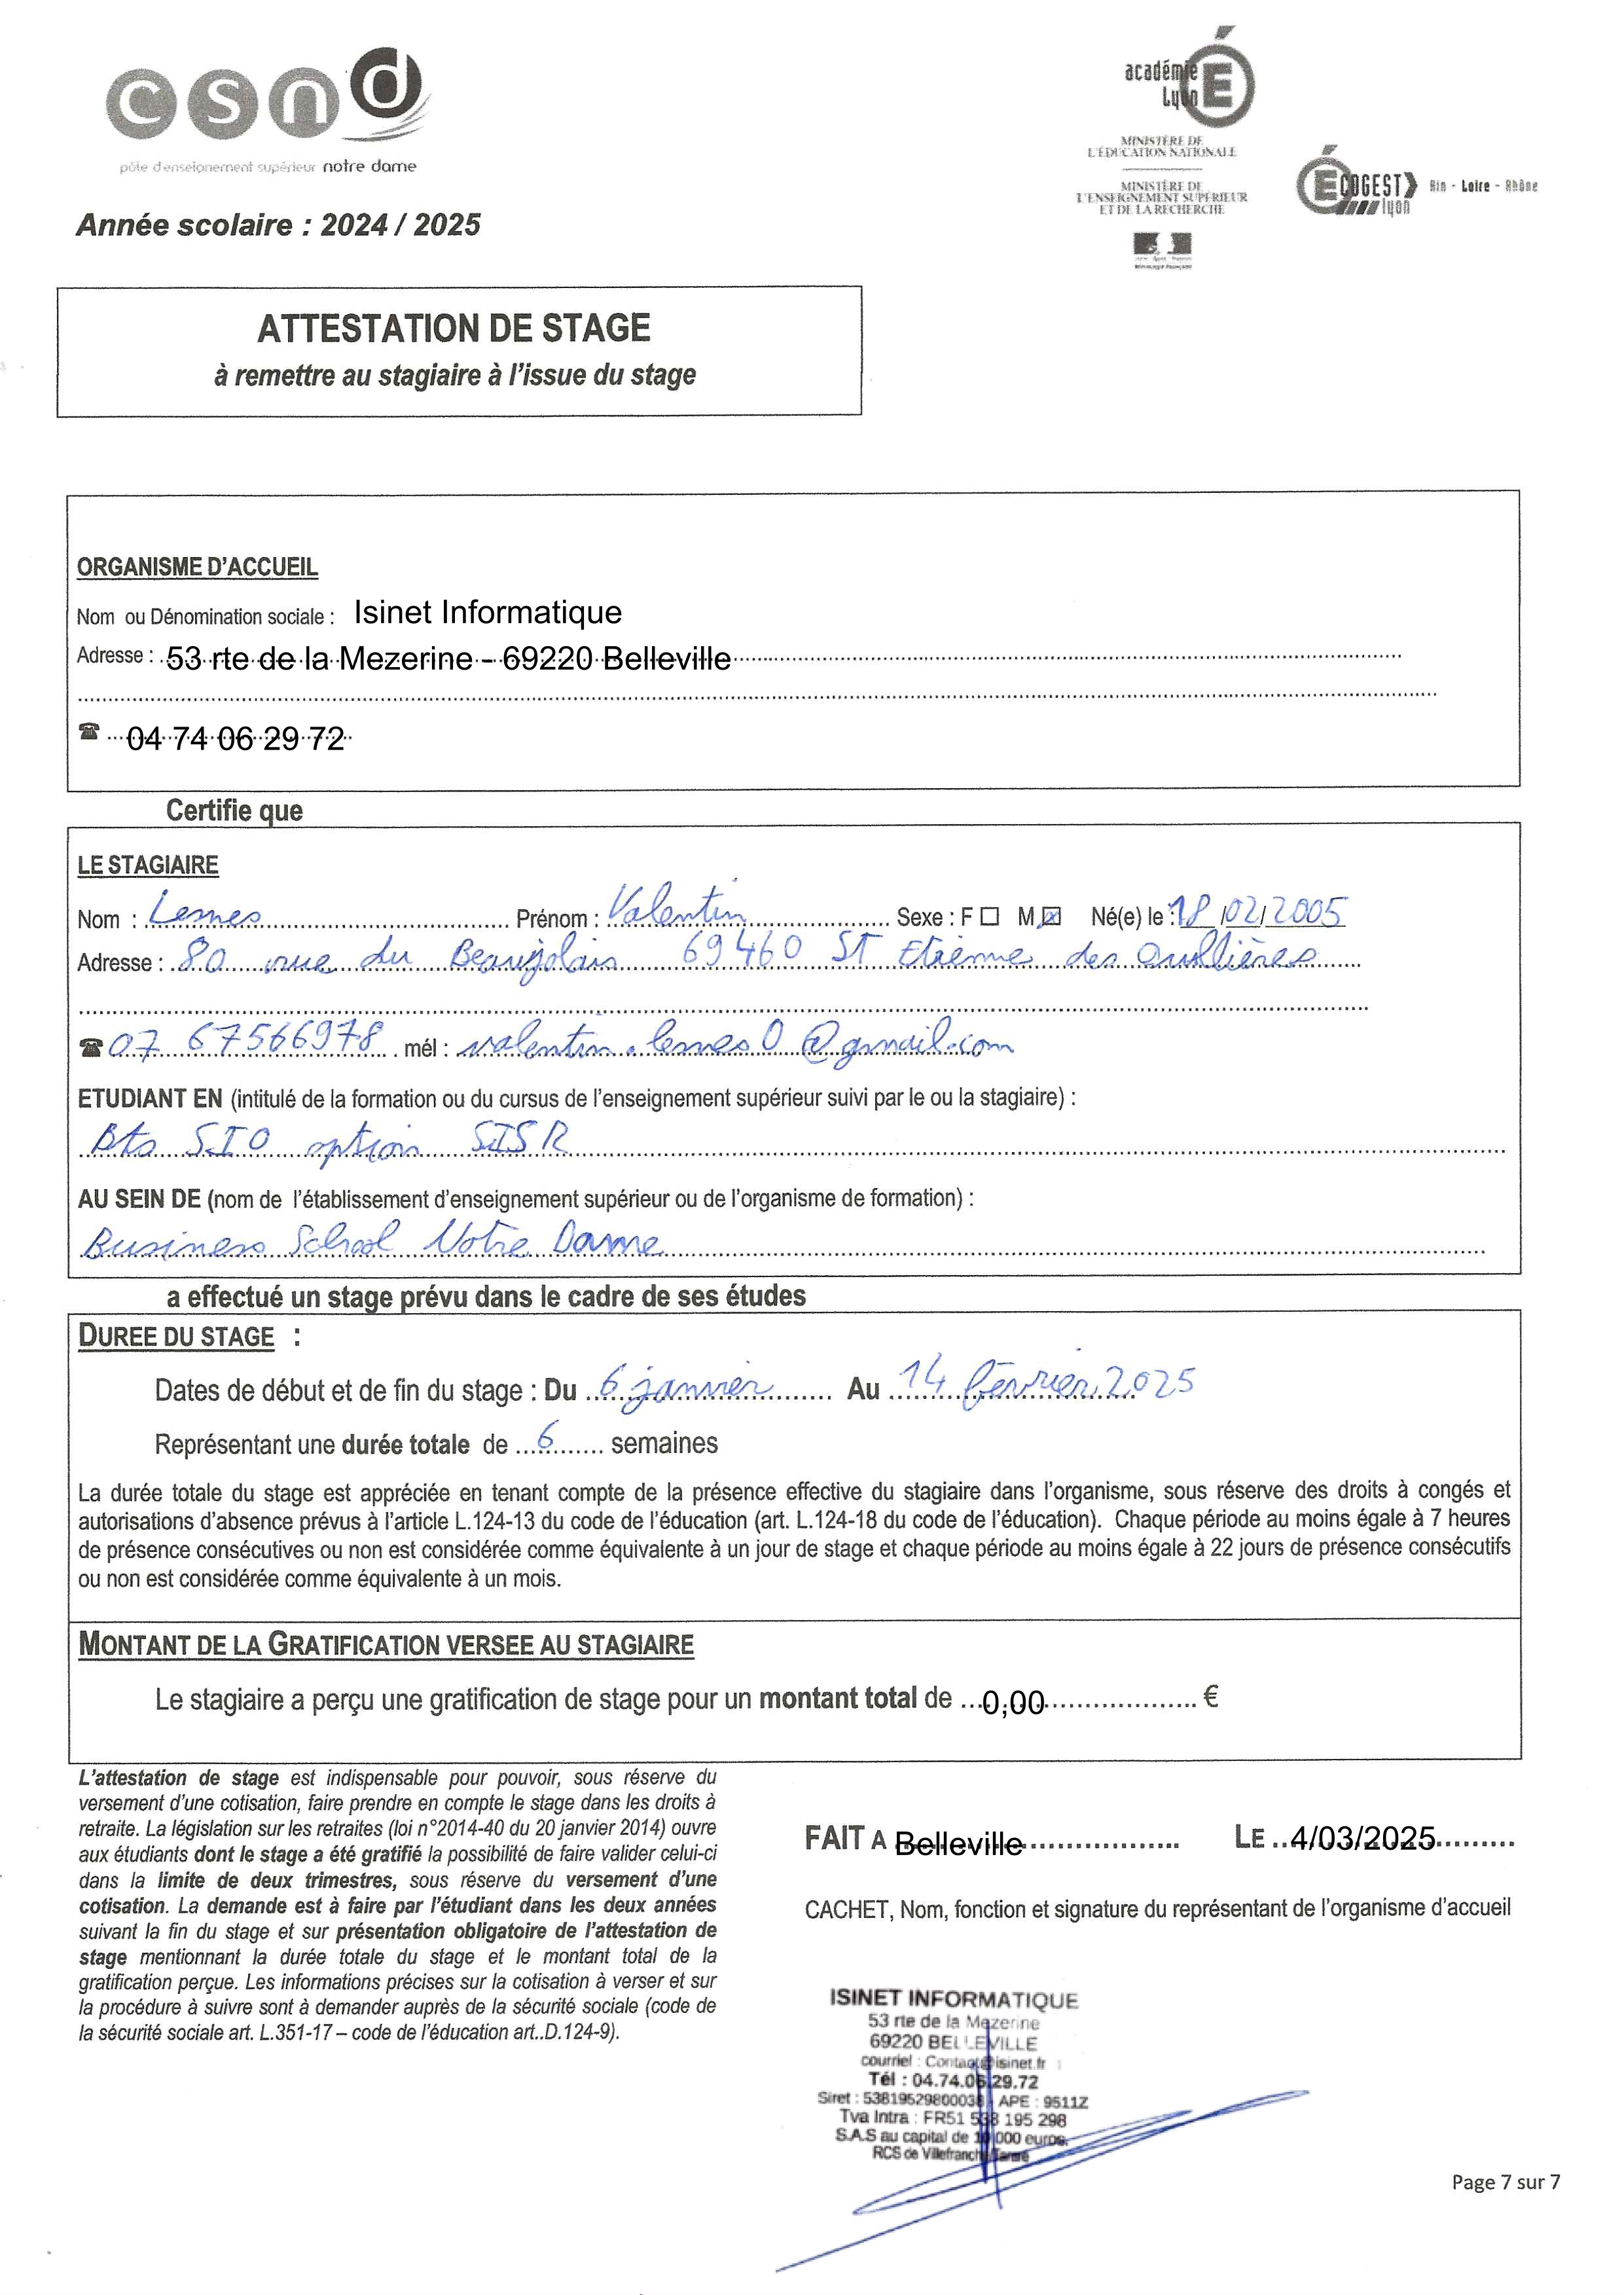 csnd
pôle d'enseignement supérieur notre dame
académie
Lyon
MINISTÈRE DE
L'ÉDUCATION NATIONALE
MINISTÈRE DE
L'ENSEIGNEMENT SUPÉRIEUR
ET DE LA RECHERCHE
ÉCOGEST
lyon
Ain - Loire - Rhône
Année scolaire : 2024 / 2025
ATTESTATION DE STAGE
à remettre au stagiaire à l'issue du stage
ORGANISME D'ACCUEIL
Nom ou Dénomination sociale : Isinet Informatique
Adresse : 53 rte de la Mezerine - 69220 Belleville
☎ 04 74 06 29 72
Certifie que
LE STAGIAIRE
Nom : Lesnes Prénom : Valentin Sexe : F ☐ M ☒ Né(e) le : 18/02/2005
Adresse : 80 rue du Beaujolais 69460 ST Etienne des Oullières
☎ 07 67566978 mél : valentin.lesnes0@gmail.com
ETUDIANT EN (intitulé de la formation ou du cursus de l'enseignement supérieur suivi par le ou la stagiaire) :
Bts SIO option SISR
AU SEIN DE (nom de l'établissement d'enseignement supérieur ou de l'organisme de formation) :
Business School Notre Dame
a effectué un stage prévu dans le cadre de ses études
DUREE DU STAGE :
Dates de début et de fin du stage : Du 6 janvier Au 14 février 2025
Représentant une durée totale de 6 semaines
La durée totale du stage est appréciée en tenant compte de la présence effective du stagiaire dans l'organisme, sous réserve des droits à congés et
autorisations d'absence prévus à l'article L.124-13 du code de l'éducation (art. L.124-18 du code de l'éducation). Chaque période au moins égale à 7 heures
de présence consécutives ou non est considérée comme équivalente à un jour de stage et chaque période au moins égale à 22 jours de présence consécutifs
ou non est considérée comme équivalente à un mois.
MONTANT DE LA GRATIFICATION VERSEE AU STAGIAIRE
Le stagiaire a perçu une gratification de stage pour un montant total de 0,00 €
L'attestation de stage est indispensable pour pouvoir, sous réserve du
versement d'une cotisation, faire prendre en compte le stage dans les droits à
retraite. La législation sur les retraites (loi n°2014-40 du 20 janvier 2014) ouvre
aux étudiants dont le stage a été gratifié la possibilité de faire valider celui-ci
dans la limite de deux trimestres, sous réserve du versement d'une
cotisation. La demande est à faire par l'étudiant dans les deux années
suivant la fin du stage et sur présentation obligatoire de l'attestation de
stage mentionnant la durée totale du stage et le montant total de la
gratification perçue. Les informations précises sur la cotisation à verser et sur
la procédure à suivre sont à demander auprès de la sécurité sociale (code de
la sécurité sociale art. L.351-17 – code de l'éducation art..D.124-9).
FAIT A Belleville LE 4/03/2025
CACHET, Nom, fonction et signature du représentant de l'organisme d'accueil
ISINET INFORMATIQUE
53 rte de la Mezerine
69220 BELLEVILLE
courriel : Contact@isinet.fr
Tél : 04.74.06.29.72
Siret : 53819529800038 APE : 9511Z
Tva Intra : FR51 538 195 298
S.A.S au capital de 10 000 euros
RCS de Villefranche Tarare
Page 7 sur 7